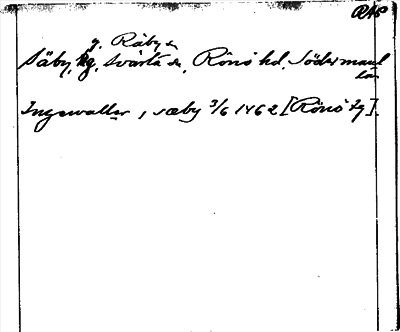 RAp
g. Råby sn
Säby, hg, Svärta sn, Rönö hd, Södermanl
län
Ingewaller, i sæby 3/6 1462 [Rönö tg].